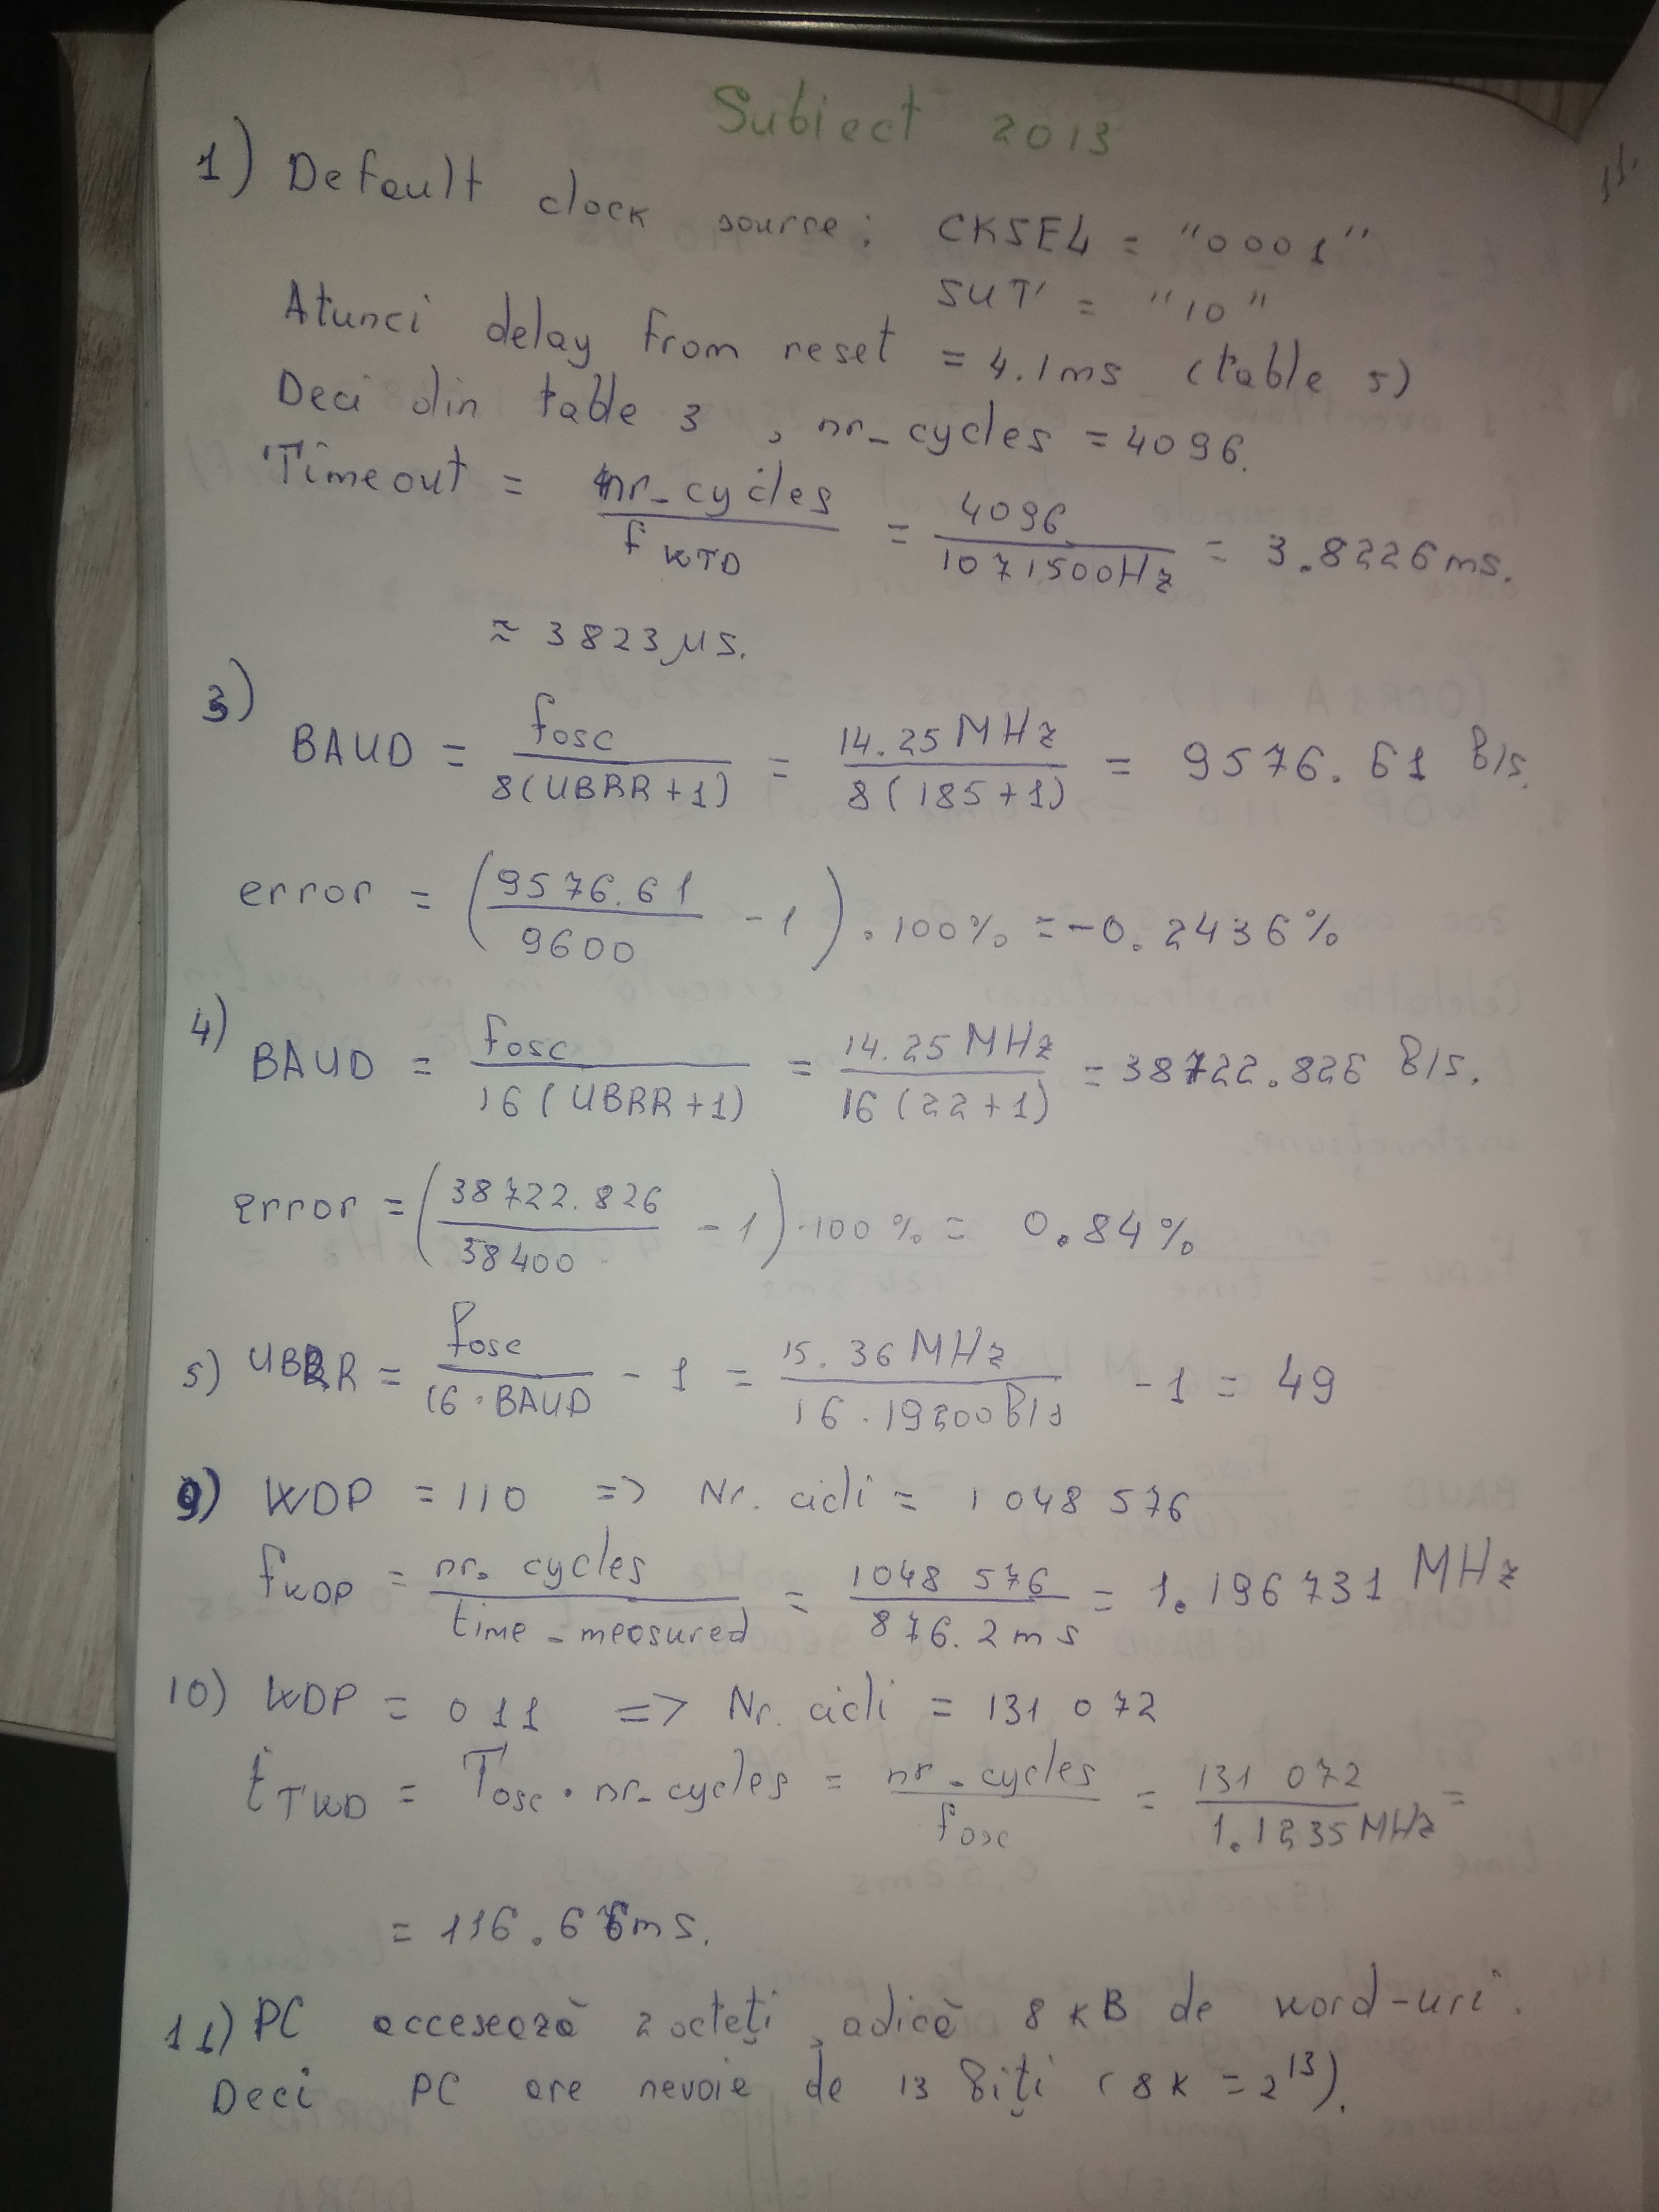 Subiect 2013
1) Default clock source: CKSEL = "0001"
SUT = "10"
Atunci delay from reset = 4.1ms (table 5)
Deci din table 3, nr_cycles = 4096.
Timeout = nr_cycles / f WTD = 4096 / 1071500Hz = 3.8226ms.
≈ 3823 μs.
3) BAUD = fosc / 8(UBRR+1) = 14.25 MHz / 8(185+1) = 9576.61 b/s.
error = (9576.61 / 9600 - 1) . 100% = -0.2436%
4) BAUD = fosc / 16(UBRR+1) = 14.25 MHz / 16(22+1) = 38722.826 b/s.
error = (38722.826 / 38400 - 1) . 100% = 0.84%
5) UBRR = fosc / 16 . BAUD - 1 = 15.36 MHz / 16 . 19200 b/s - 1 = 49
9) WDP = 110 => Nr. cicli = 1 048 576
fWDP = nr. cycles / time_measured = 1048 576 / 876.2ms = 1.196731 MHz
10) WDP = 011 => Nr. cicli = 131 072
tTWD = Tosc . nr_cycles = nr_cycles / fosc = 131 072 / 1.1235 MHz =
= 116.66ms.
11) PC accesează 2 octeți, adică 8 kB de word-uri.
Deci PC are nevoie de 13 biți (8k = 2^13).